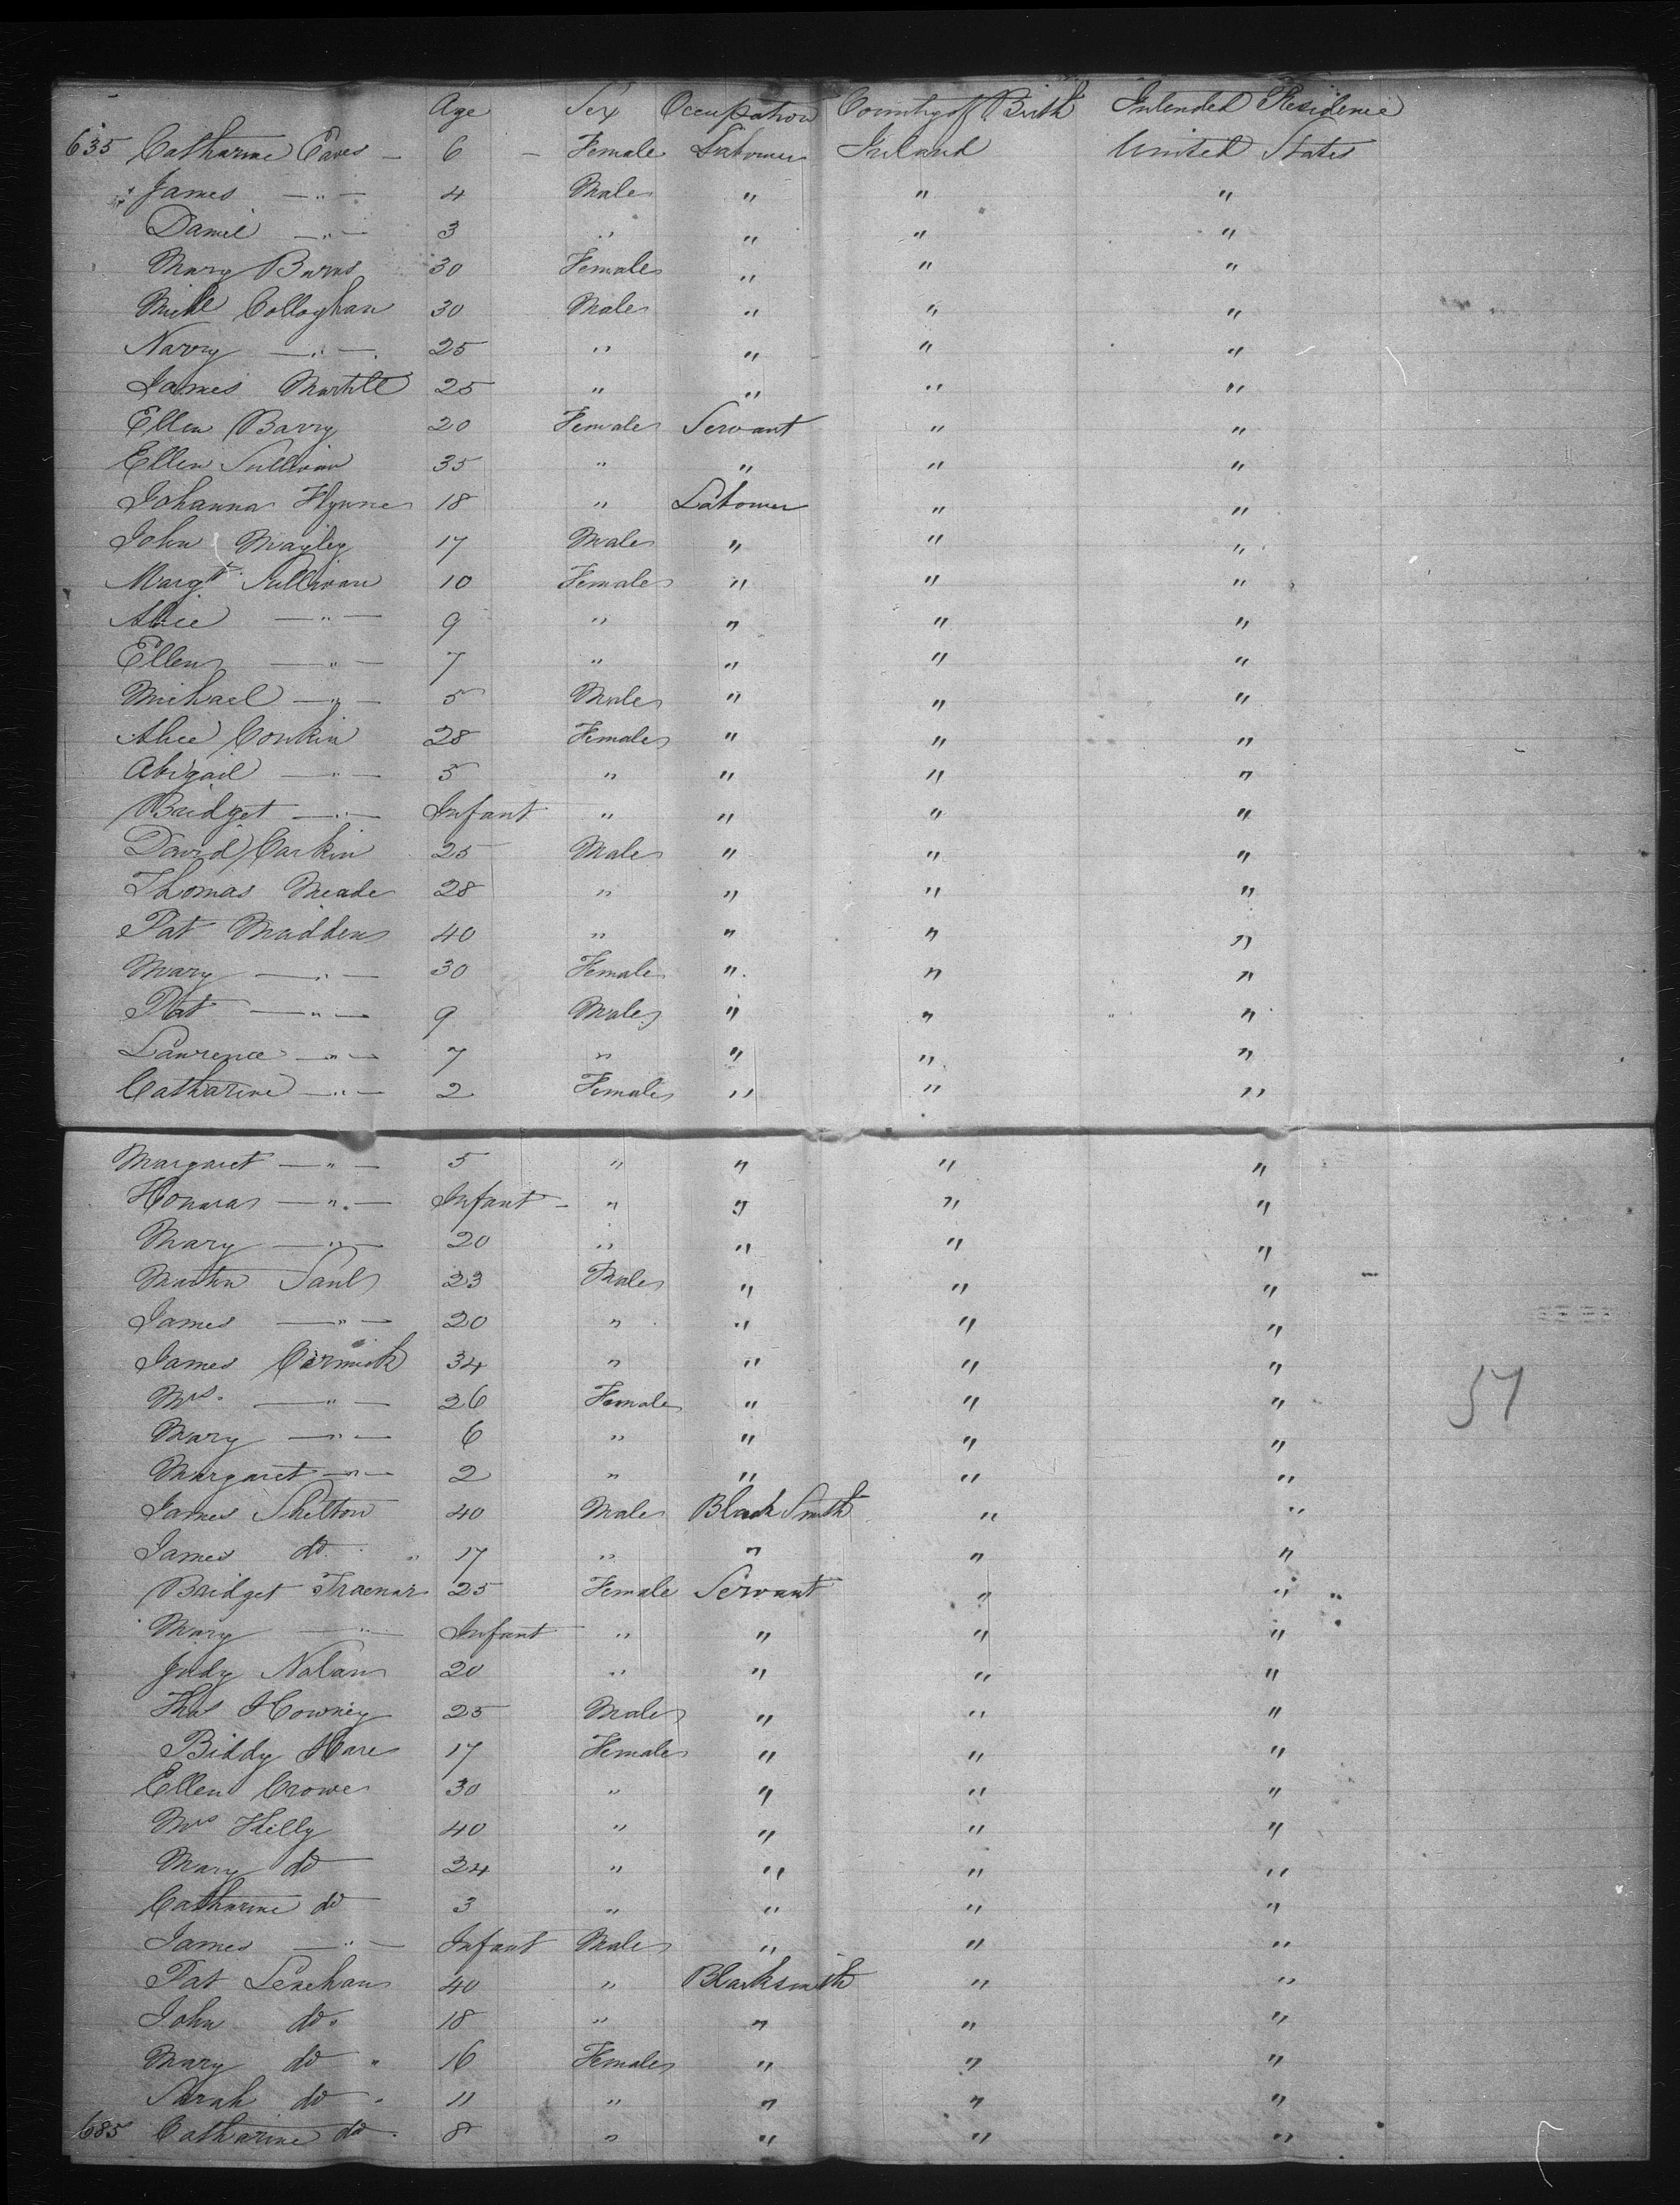 Age Sex Occupation Country of Birth Intended Residence
635 Catharine Eaves — 6 — Female Labourer Ireland United States
James — " — 4 Male " " "
Daniel — " — 3 " " " "
Mary Burns 30 Female " " "
Michl Colloghan 30 Male " " "
Narry — " — 25 " " " "
James 25 " " " "
Ellen Barry 20 Female Servant " "
Ellen Sullivan 35 " " " "
Johanna Flynne 18 " Labourer " "
John Mayley 17 Male " " "
Margt Sullivan 10 Female " " "
Alice — " — 9 " " " "
Ellen — " — 7 " " " "
Michael — " — 5 Male " " "
Alice Conkin 28 Female " " "
Abigail — " — 5 " " " "
Bridget — " — Infant " " " "
David Carkin 25 Male " " "
Thomas Meade 28 " " " "
Pat Madden 40 " " " "
Mary — " — 30 Female " " "
Pat — " — 9 Male " " "
Lawrence — " — 7 " " " "
Catharine — " — 2 Female " " "
Margaret — " — 5 " " " "
Honora — " — Infant — " " " "
Mary — " — 20 " " " "
Martin Saul 23 Male " " "
James — " — 20 " " " "
James Cormick 34 " " " "
Mrs. — " — 26 Female " " "
Mary — " — 6 " " " "
Margaret — " — 2 " " " "
James Shelton 40 Male Black Smith " "
James do " 17 " " " "
Bridget 25 Female Servant " "
Mary — " — Infant " " " "
Judy Nolan 20 " " " "
Thos Howney 25 Male " " "
Biddy Hare 17 Female " " "
Ellen Crowe 30 " " " "
Mrs Hilly 40 " " " "
Mary do 24 " " " "
Catharine do 3 " " " "
James — " — Infant Male " " "
Pat Lenehan 40 " Blacksmith " "
John do. 18 " " " "
Mary do " 16 Female " " "
Sarah do " 11 " " " "
685 Catharine do. 8 " " " "
57